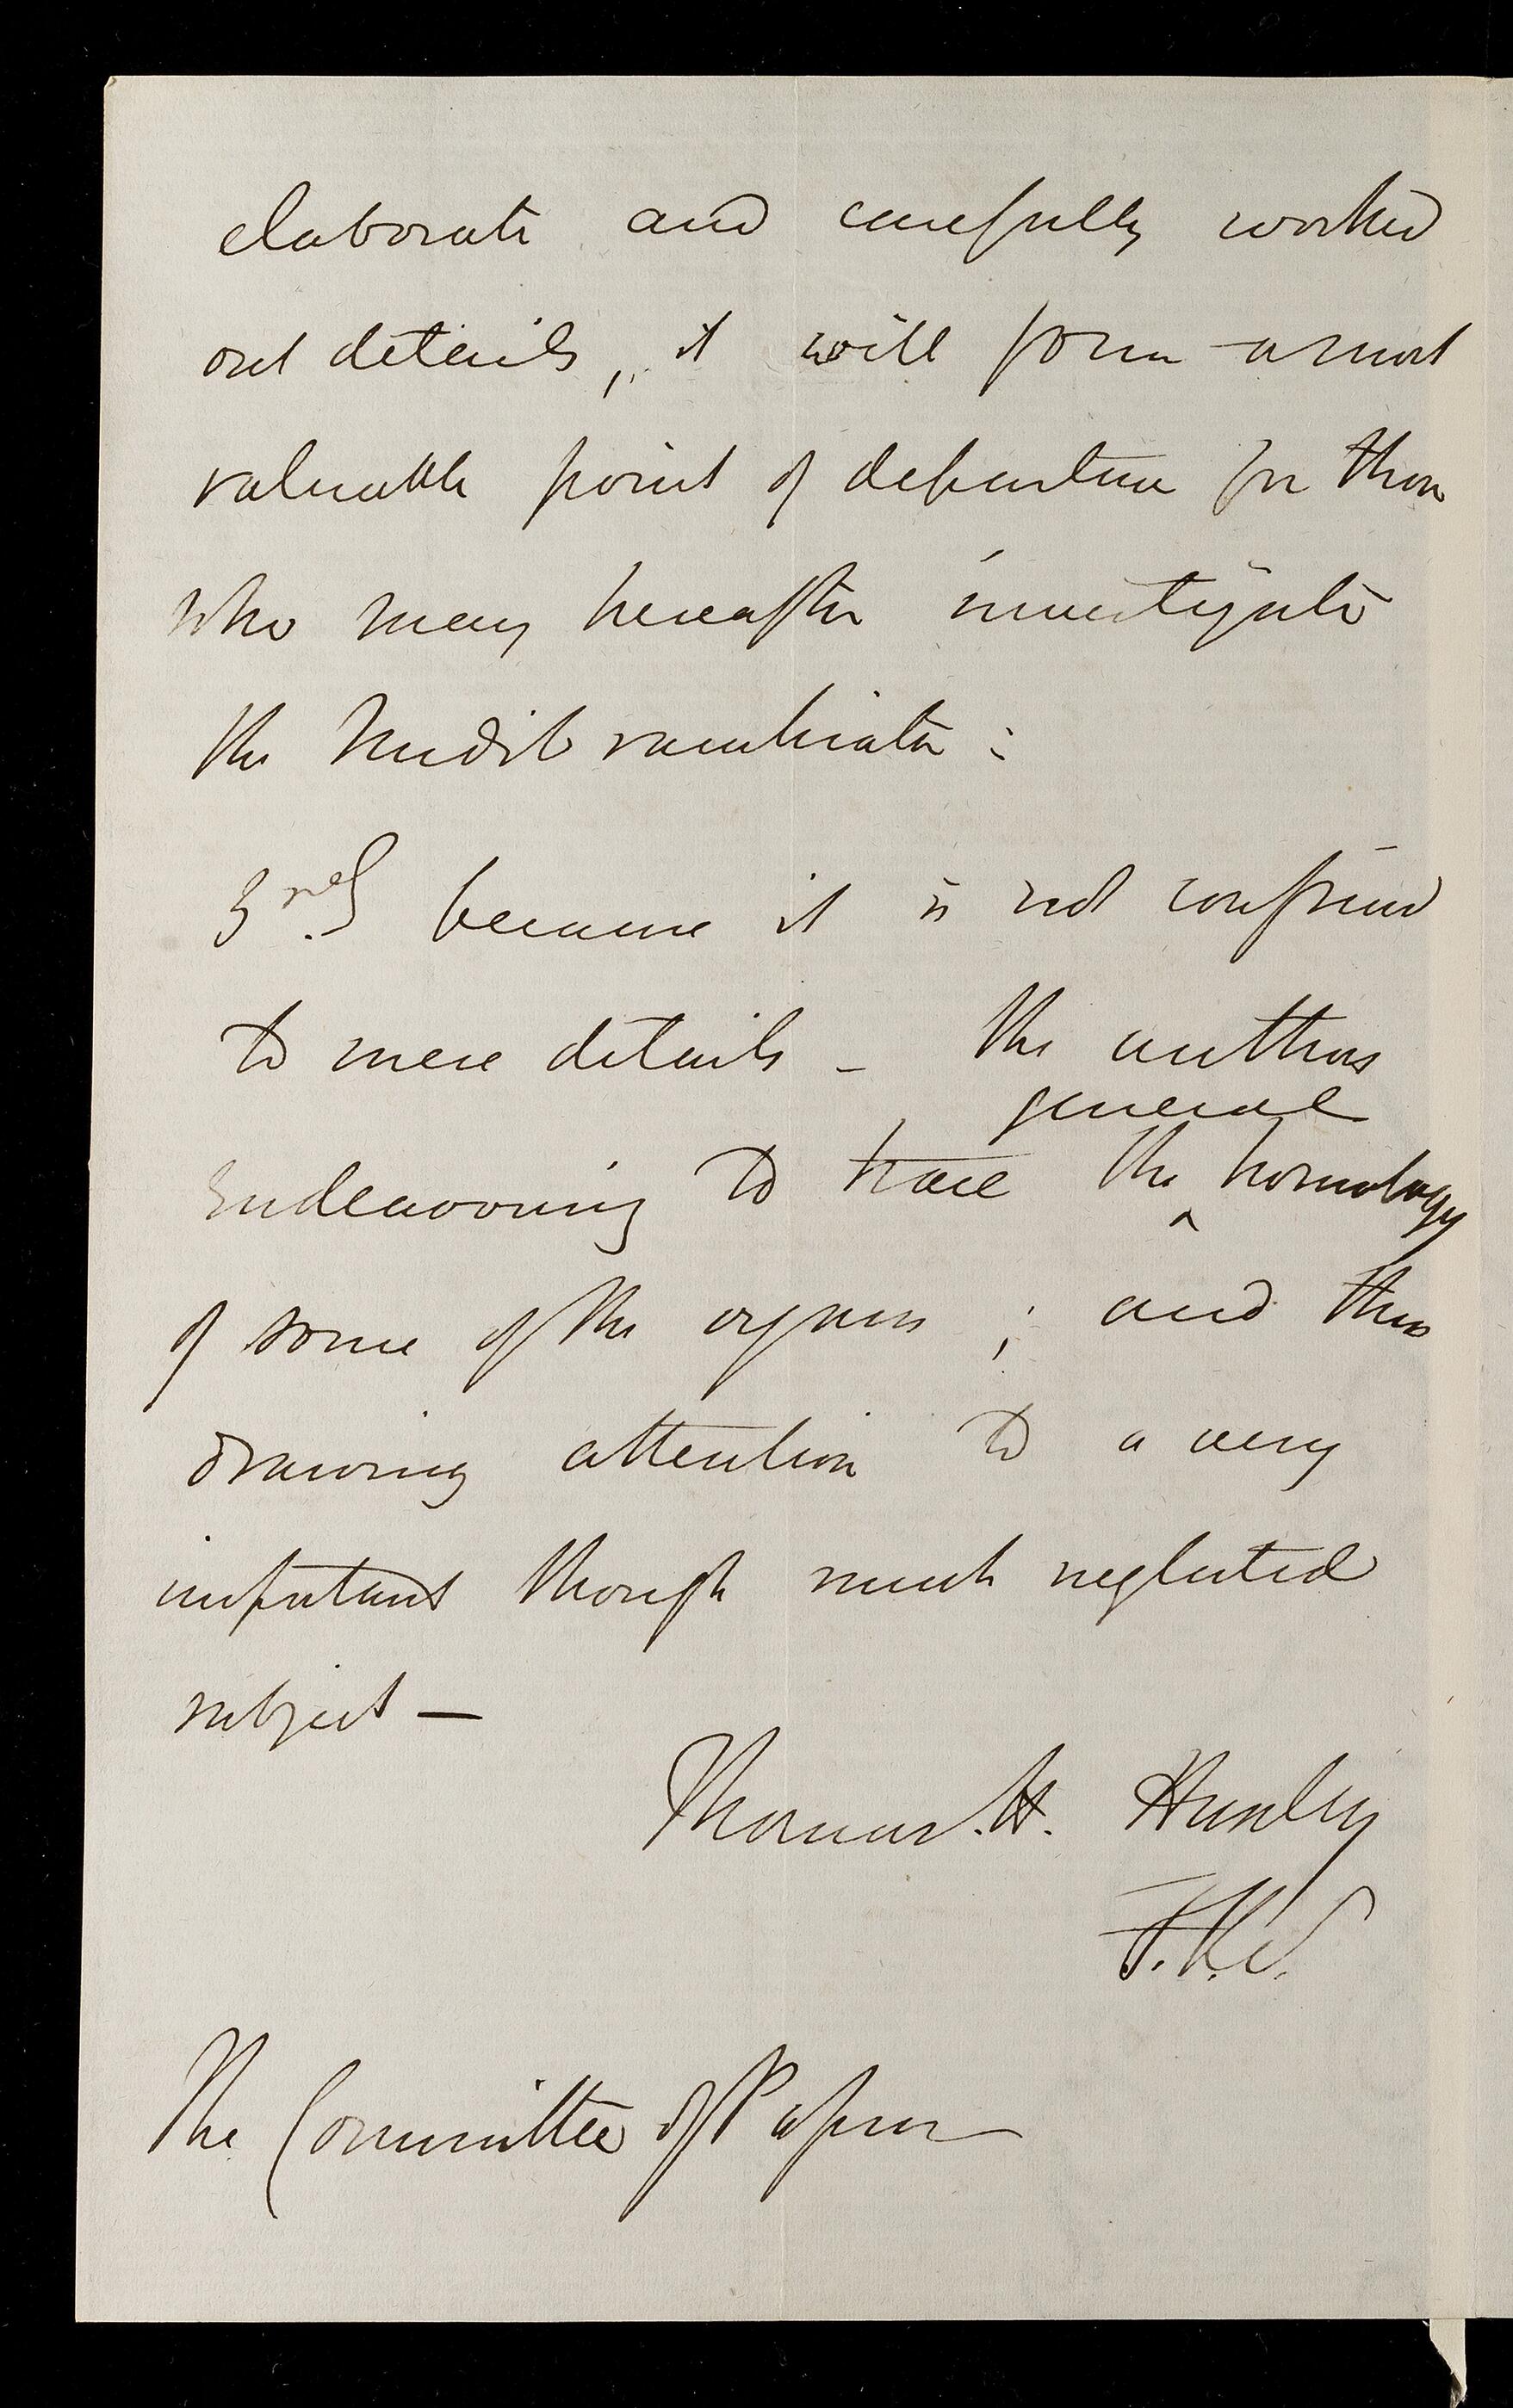 elaborate and carefully worked
out details, it will form a most
valuable point of departure for those
who may hereafter investigate
the Nudibranchiata:
3rd. because it is not confined
to mere details – the authors
general
endeavouring to trace the ^ homology
of some of the organs; and thus
drawing attention to a very
important though much neglected
subject —
Thomas. H. Huxley
F.R.S.
The Committee of Papers